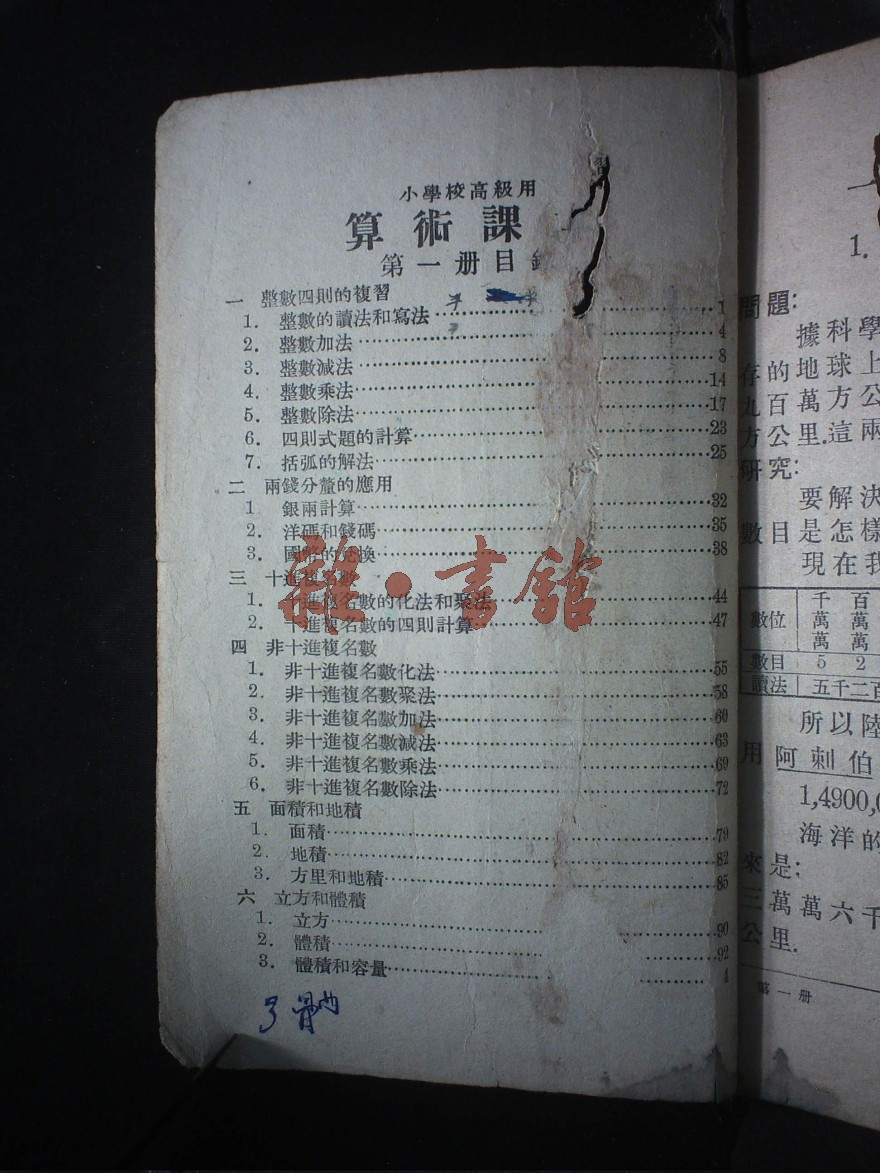 小學校高級用
算術課
第一册目
一 整數四則的複習
1. 整數的讀法和寫法 1
2. 整數加法 4
3. 整數減法 8
4. 整數乘法 14
5. 整數除法 17
6. 四則式題的計算 23
7. 括弧的解法 25
二 兩錢分釐的應用
1 銀兩計算 32
2. 洋碼和錢碼 35
3. 國幣的兌換 38
三 十進複名數
1. 十進複名數的化法和聚法 44
2. 十進複名數的四則計算 47
四 非十進複名數
1. 非十進複名數化法 55
2. 非十進複名數聚法 58
3. 非十進複名數加法 60
4. 非十進複名數減法 63
5. 非十進複名數乘法 69
6. 非十進複名數除法 72
五 面積和地積
1. 面積 79
2. 地積 82
3. 方里和地積 85
六 立方和體積
1. 立方 90
2. 體積 92
3. 體積和容量 4
雜·書館
1.
問題:
據科學
存的地球上
九百萬方公
方公里.這兩
研究:
要解決
數目是怎樣
現在我
數位 千萬萬 百萬萬
數目 5 2
讀法 五千二百
所以陸
用阿剌伯
1,4900,
海洋的
來是:
三萬萬六千
公里.
第一册